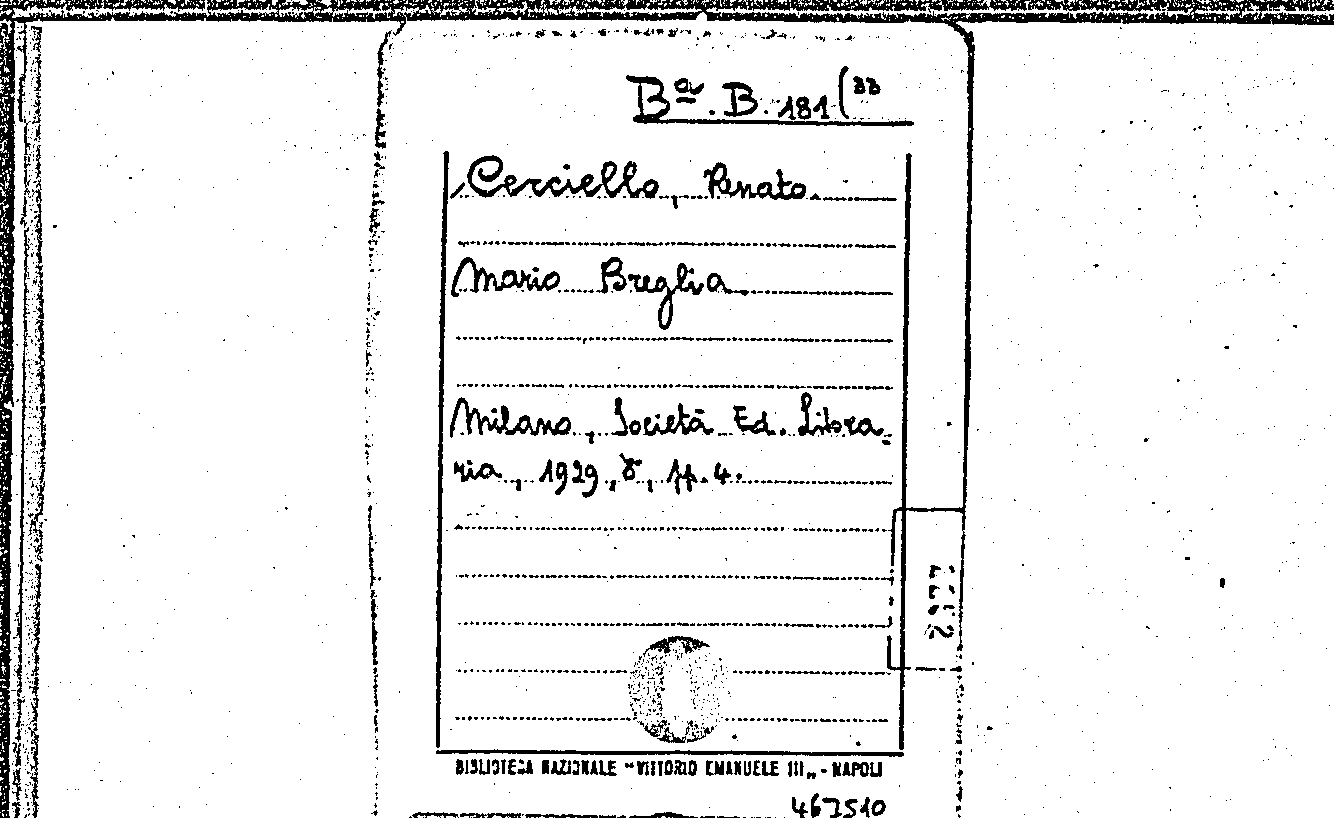 Bᵃ. B. 181 (³³
Cerciello, Renato.
Mario Breglia.
Milano, Società Ed. Libra-
ria, 1929, 8°, pp. 4.
BIBLIOTECA NAZIONALE "VITTORIO EMANUELE III„ - NAPOLI
467510